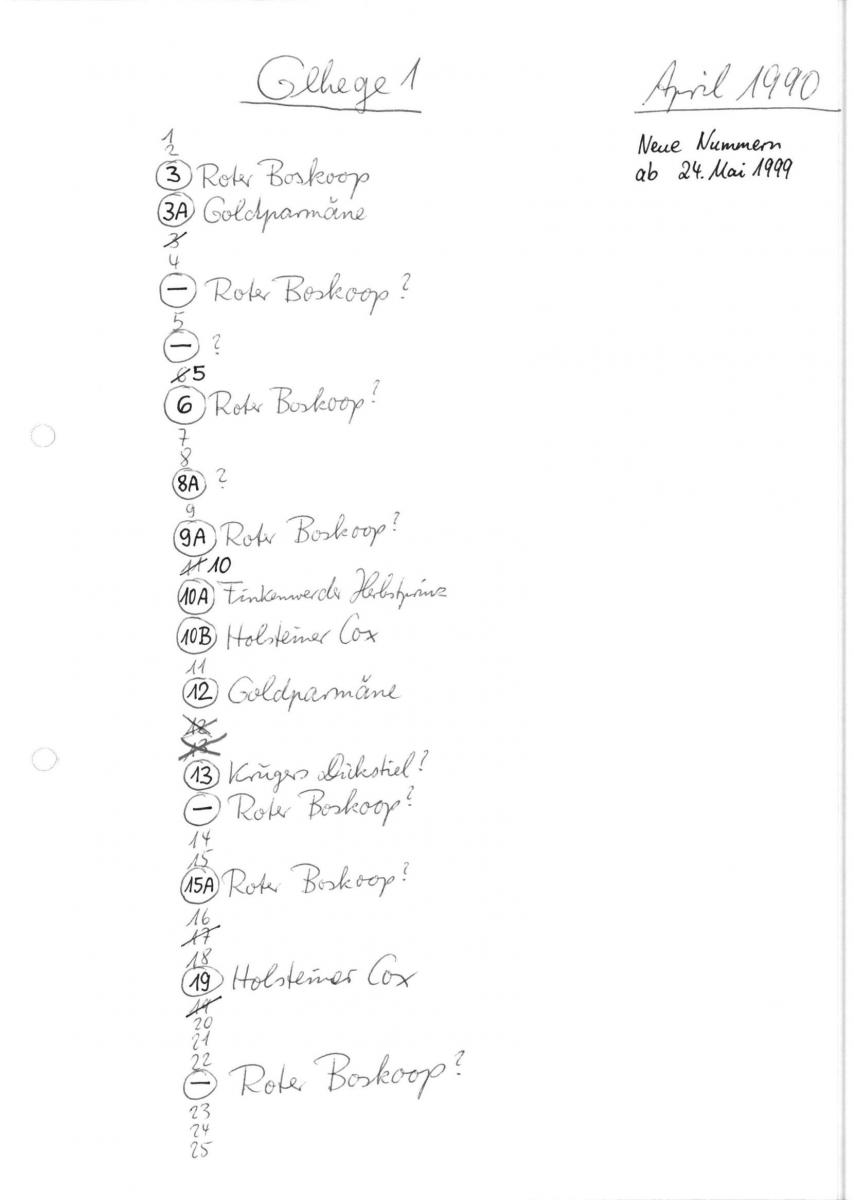 Glhege 1
April 1990
Neue Nummern
ab 24. Mai 1999
1
2
3 Roter Boskoop
3A Goldparmäne
3
4
– Roter Boskoop?
5
– ?
6 5
6 Roter Boskoop?
7
8
8A ?
9
9A Roter Boskoop?
11 10
10A Finkenwerder Herbstprinz
10B Holsteiner Cox
11
12 Goldparmäne
12
13
13 Krügers Dickstiel?
– Roter Boskoop?
14
15
15A Roter Boskoop?
16
17
18
19 Holsteiner Cox
19
20
21
22
– Roter Boskoop?
23
24
25